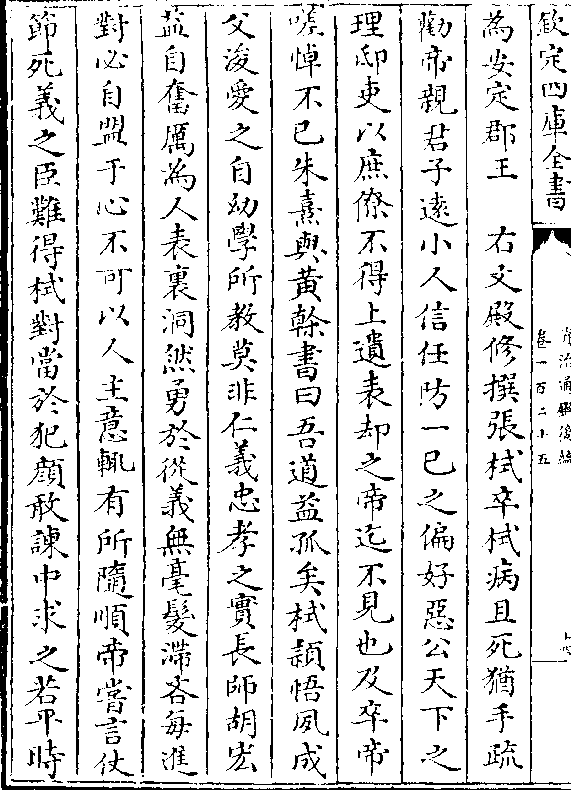 欽定四庫全書
資治通鑑後編
卷一百二十五
為安定郡王　右文殿修撰張栻卒栻病且死猶手疏
勸帝親君子逺小人信任防一已之偏好惡公天下之
理邸吏以庶僚不得上遺表却之帝迄不見也及卒帝
嗟悼不已朱熹與黄榦書曰吾道益孤矣栻頴悟夙成
父浚愛之自幼學所教莫非仁義忠孝之實長師胡宏
益自奮厲為人表裏洞然勇於從義無毫髮滯吝每進
對必自盟于心不可以人主意輒有所隨順帝嘗言仗
節死義之臣難得栻對當於犯顔敢諫中求之若平時